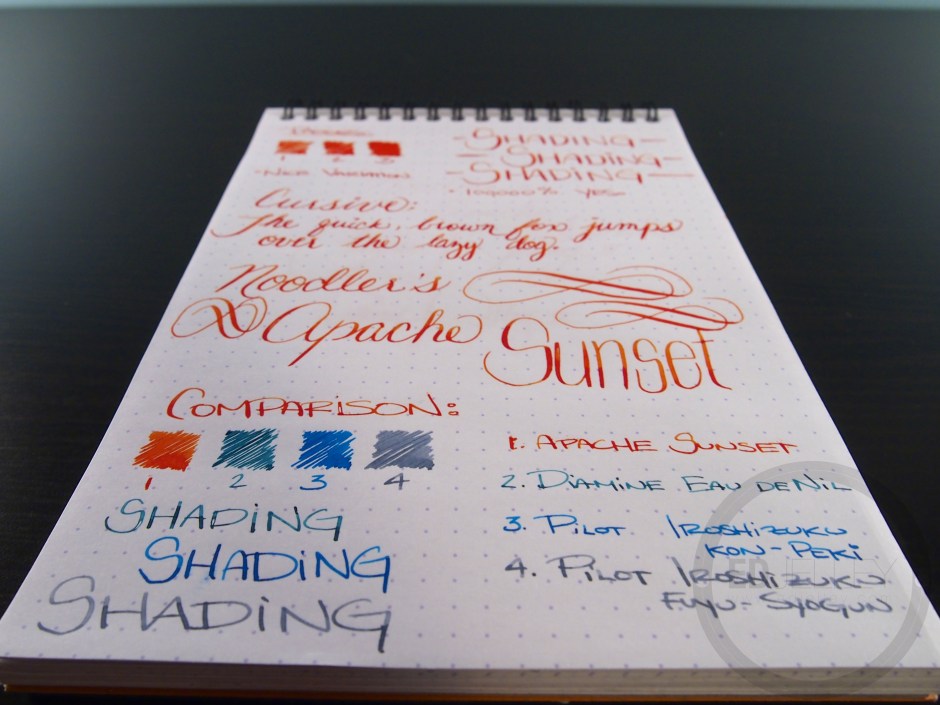 1 2 3
- Nice Variation
- Shading -
- Shading -
- Shading -
- 100000% Yes -
Cursive:
The quick, brown fox jumps
over the lazy dog.
Noodler's
Apache
Sunset
Comparison:
1 2 3 4
Shading
Shading
Shading
1. Apache Sunset
2. Diamine Eau de Nil
3. Pilot Iroshizuku
Kon-Peki
4. Pilot Iroshizuku
Fuyu-Syogun